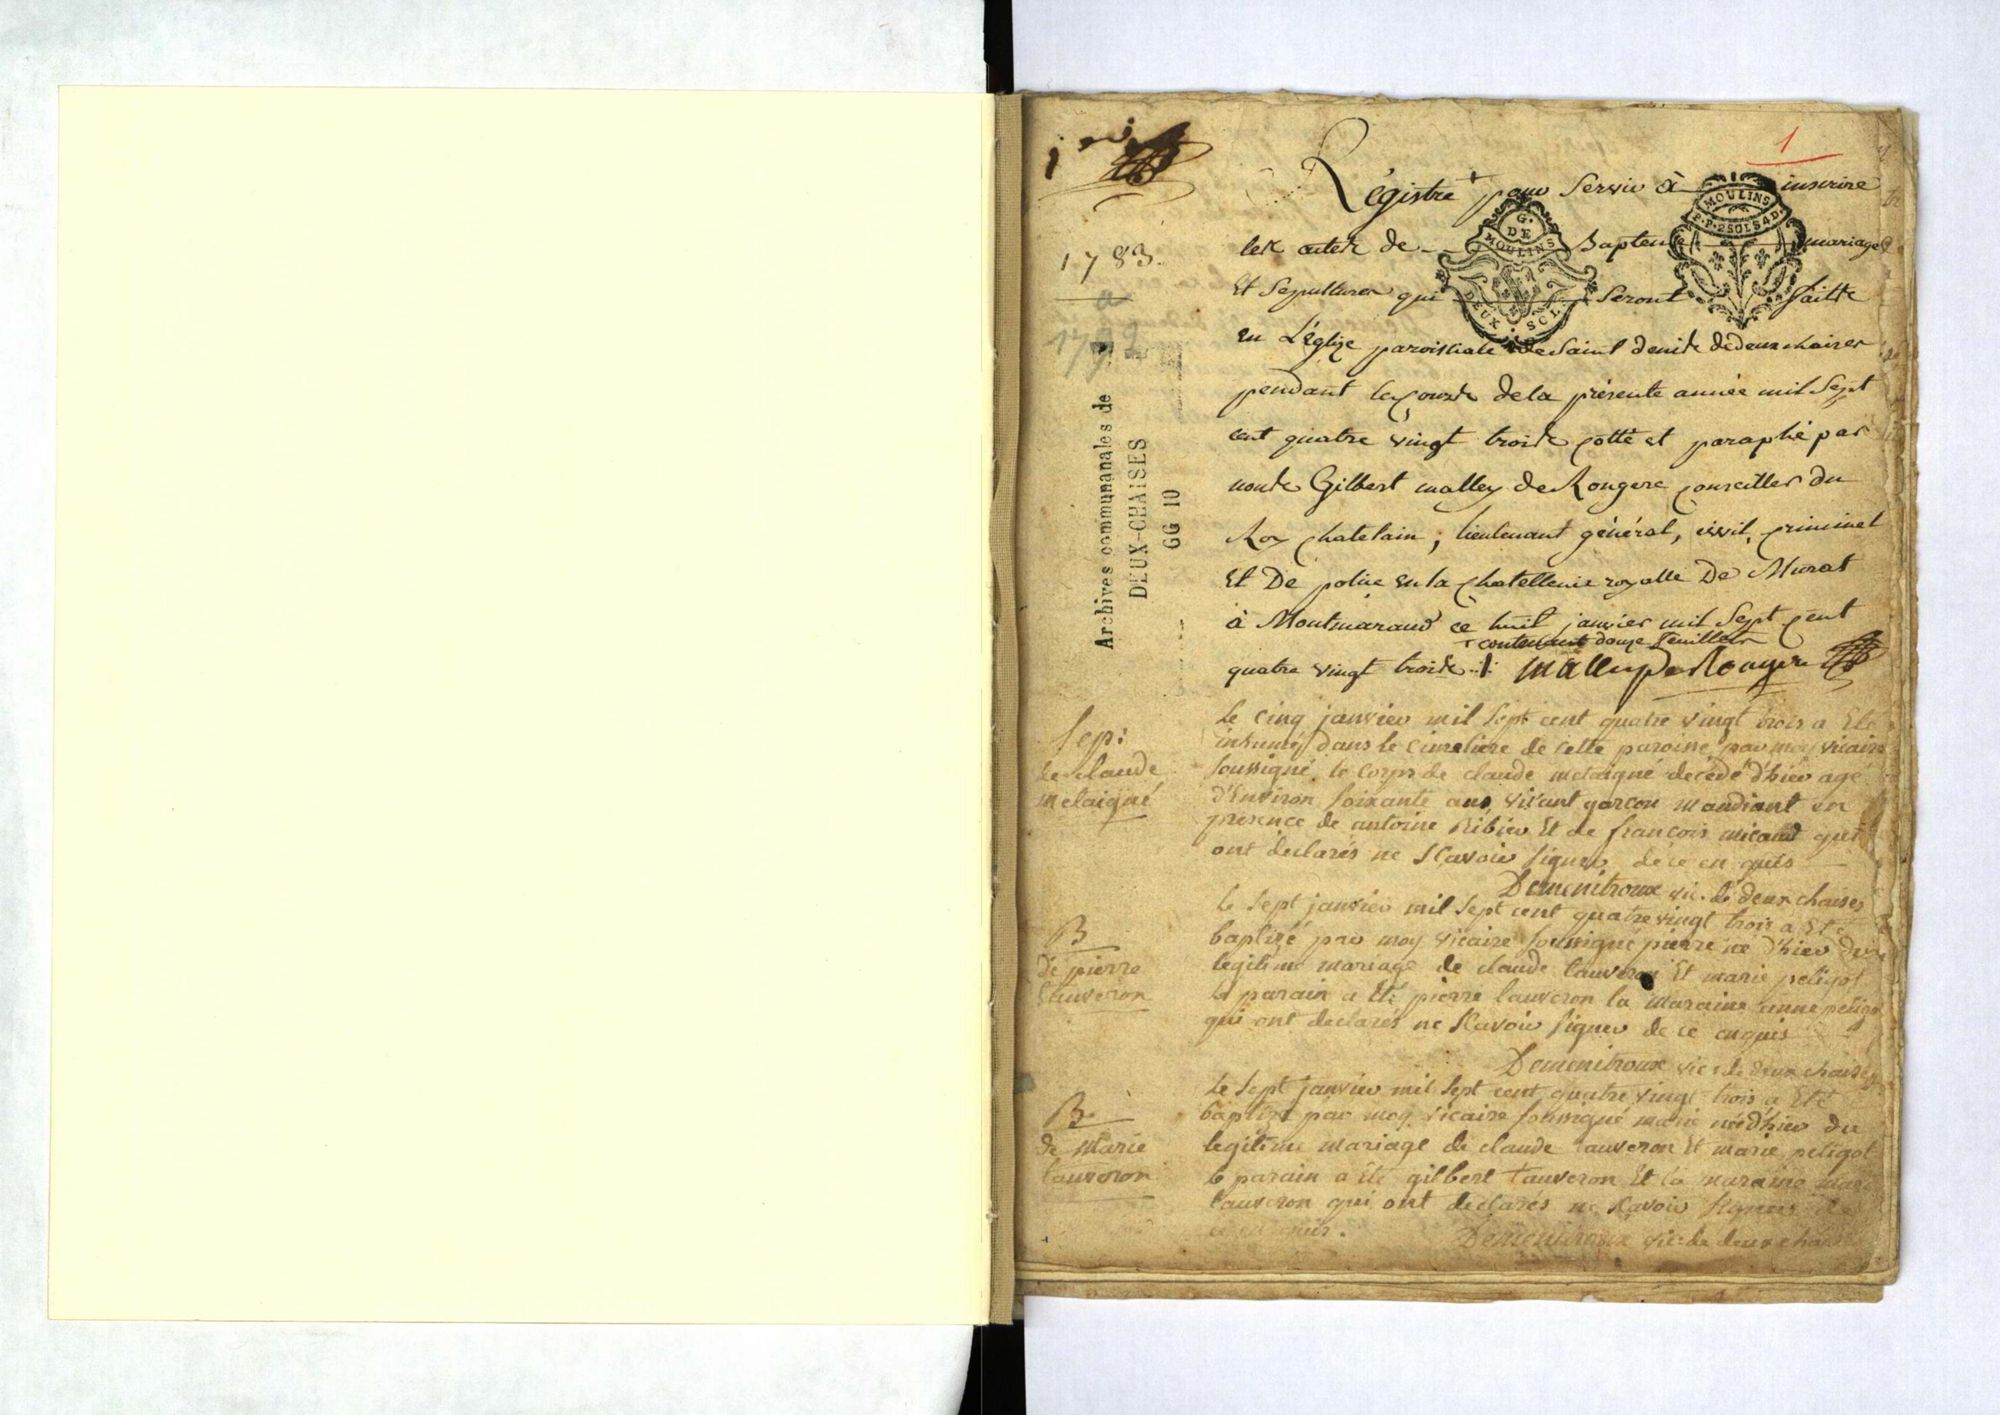 1
Régistre + pour Servir à inscrire
les actes de Baptem mariages
Et Sepultures qui Seront faitte
en L'Eglize paroissiale de Saint denis de deux chaizes
pendant le Courts de la présente année mil Sept
cent quatre vingt trois cotté et paraphé par
nous Gilbert malley de Rougere Conseiller du
Roy Chatelain, lieutenant général, civil, criminel
Et De police en la Chatellenie royalle De Murat
à Montmaraud ce huit janvier mil Sept Cent
+ contenant douze feuillets
quatre vingt trois ./. Malley de Rougere
G. DE MOULINS
DEUX SOL.
MOULINS
P.P. 2 SOLS 4 D.
1783.
a
1792
Archives communales de
DEUX-CHAISES
GG 10
Sep:
de claude
melaigné
le cinq janvier mil sept cent quatre vingt trois a Eté
inhumé dans le cimetiere de cette paroisse par moy vicaire
soussigné le corps de claude melaigné décédé d'hier agé
d'Environ soixante ans vivant garcon mandiant en
presence de antoine Ribier Et de francois micaud qui
ont declarés ne scavoir signer de ce en quis
Demenitroux vic. de deux chaises
B
de pierre
tauveron
le sept janvier mil sept cent quatre vingt trois a Eté
baptizé par moy vicaire soussigné pierre né d'hier du
legitime mariage de claude tauveron Et marie peligot
le parain a Eté pierre tauveron la maraine anne peligot
qui ont declarés ne scavoir signer de ce enquis
Demenitroux vic. de deux chaises
B
de marie
tauveron
le sept janvier mil sept cent quatre vingt trois a Eté
baptizé par moy vicaire soussigné marie née d'hier du
legitime mariage de claude tauveron Et marie peligot
le parain a Eté gilbert tauveron Et la maraine marie
tauveron qui ont declarés ne scavoir signer de
ce en quis.
Demenitroux vic. de deux chaises